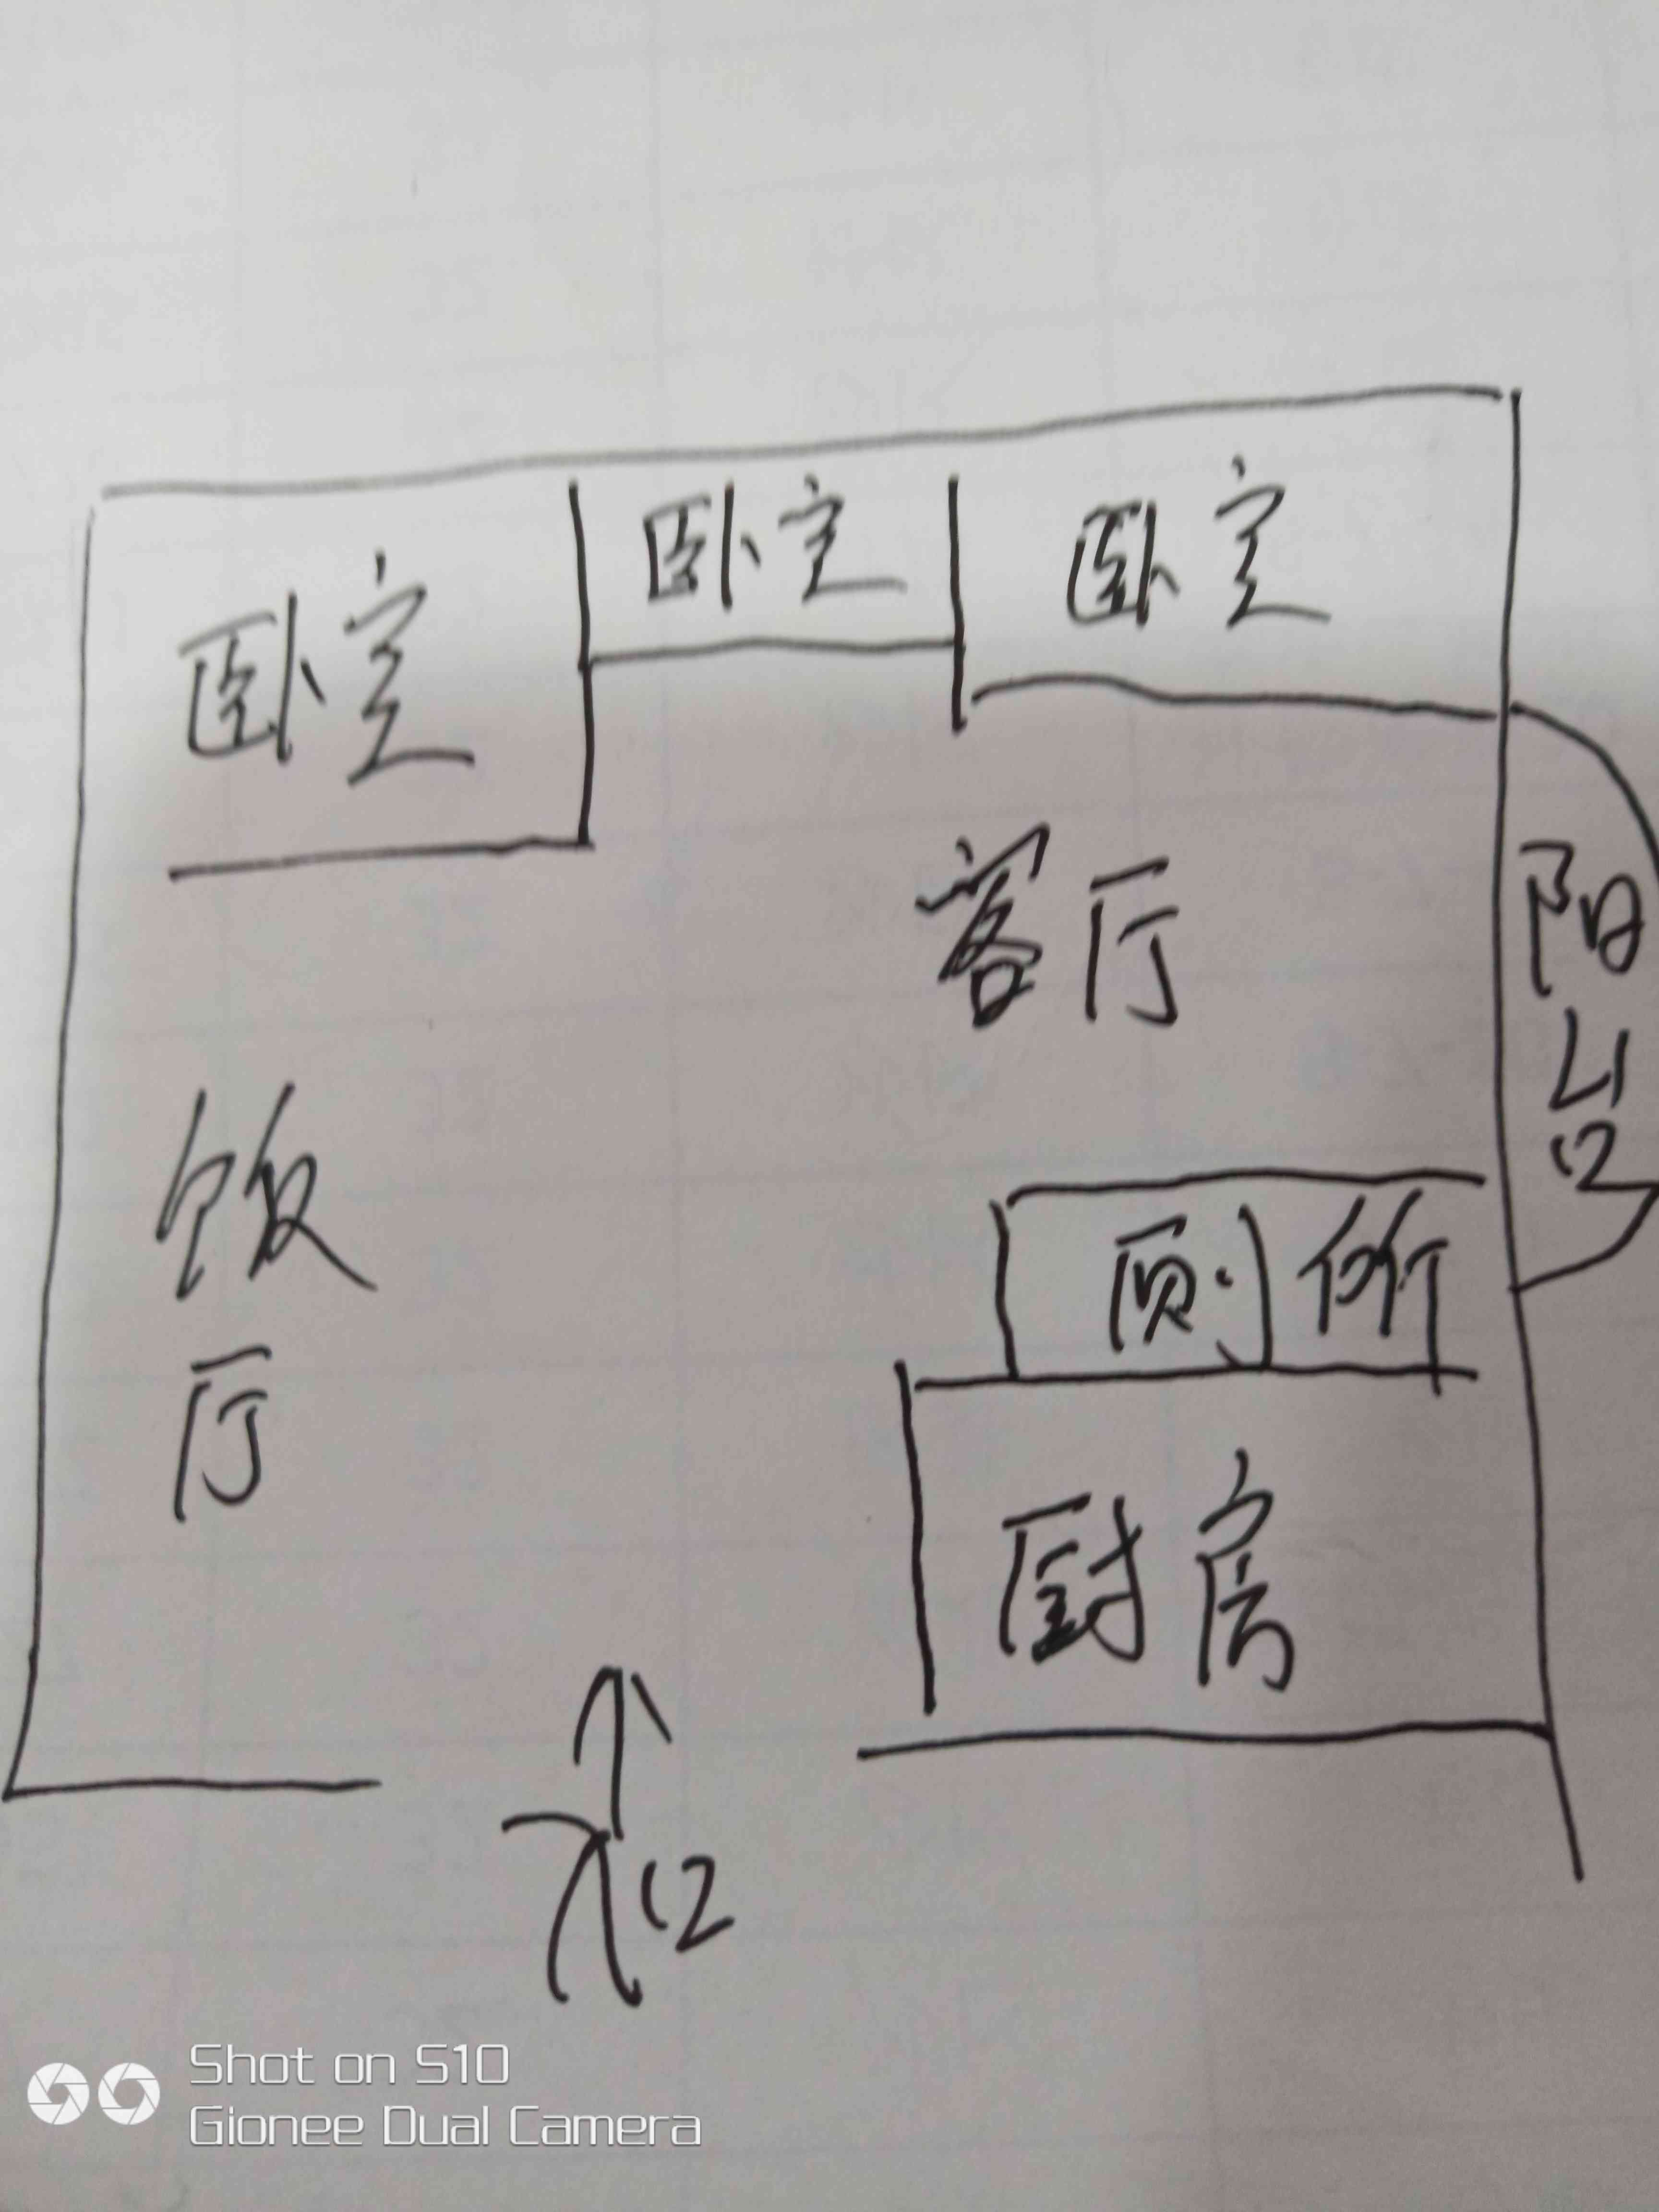 卧室
卧室
卧室
客厅
阳台
饭厅
厕所
厨房
入口
Shot on S10
Gionee Dual Camera